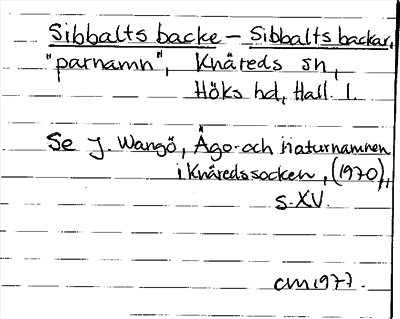 Sibbalts backe – Sibbalts backar,
"parnamn", Knäreds sn,
Höks hd, Hall. l.
Se J. Wangö, Ägo- och naturnamnen
i Knäreds socken, (1970),
s. XV.
CM 1977.